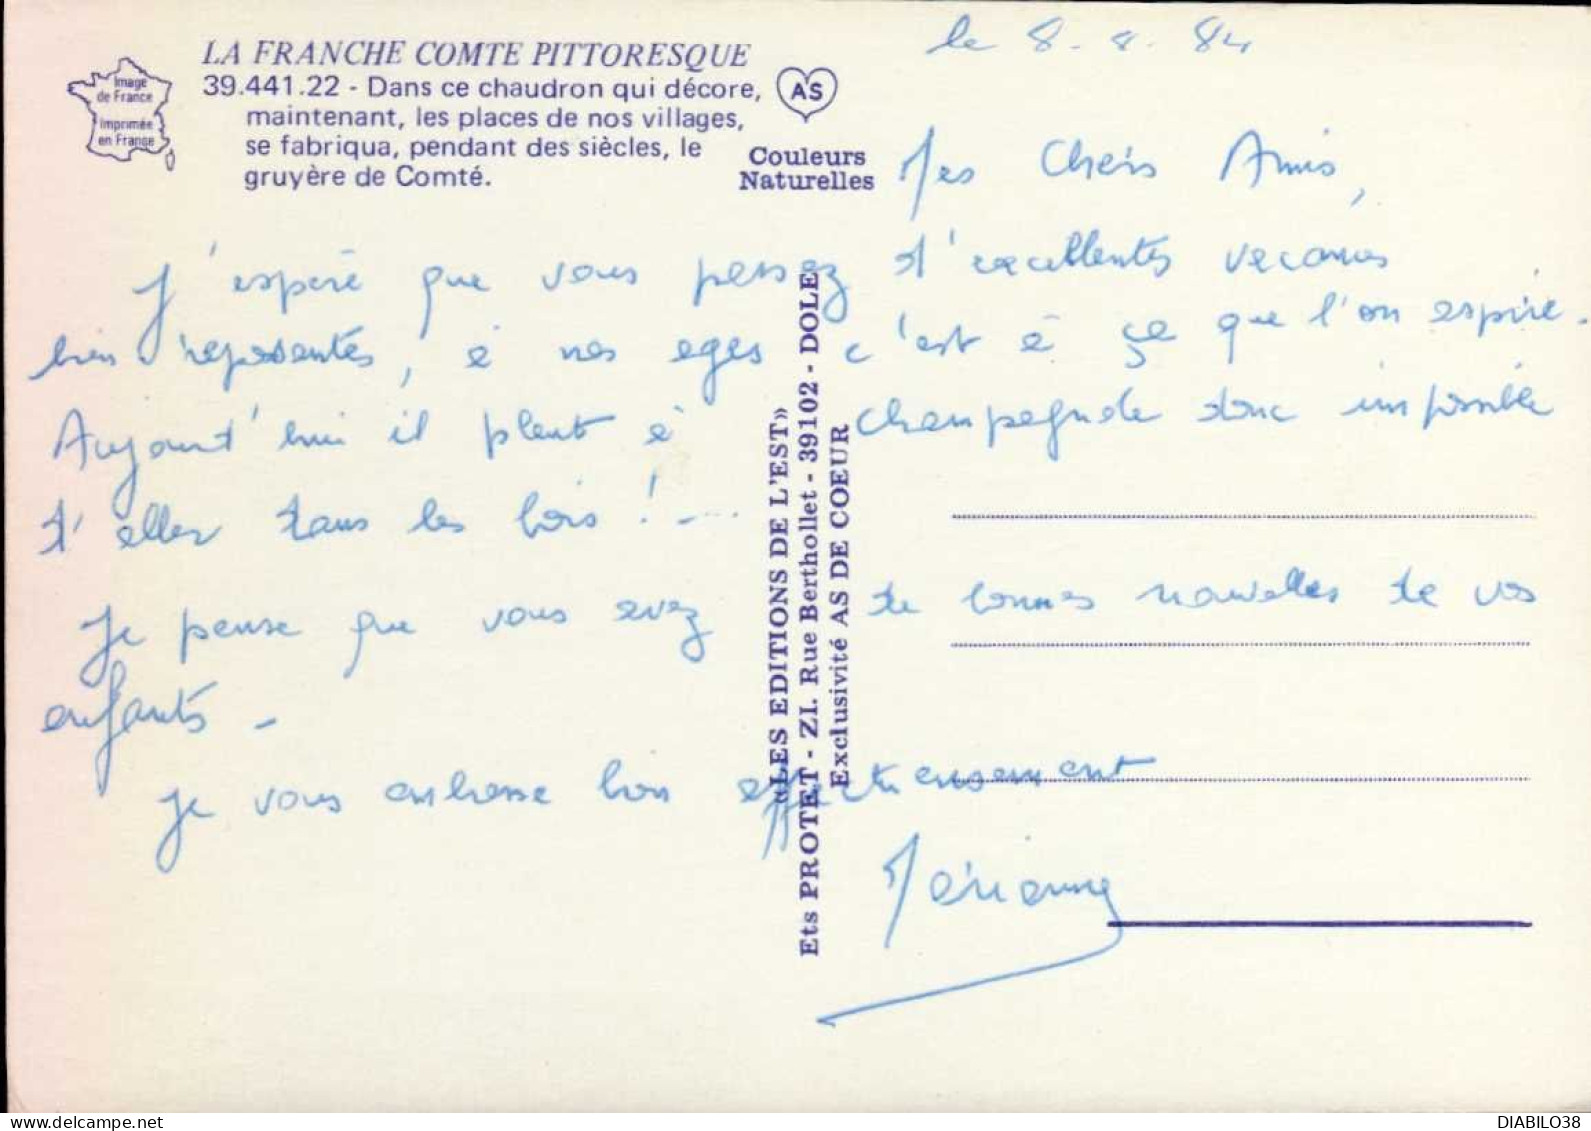 LA FRANCHE COMTE PITTORESQUE
39.441.22 - Dans ce chaudron qui décore,
maintenant, les places de nos villages,
se fabriqua, pendant des siècles, le
gruyère de Comté.
Image
de France
Imprimée
en France
AS
Couleurs
Naturelles
le 8.8.84
Mes Chers Amis,
J'espère que vous passez d'excellentes vacances
bien reposantes, à nos ages c'est à ce que l'on espère.
Aujourd'hui il pleut à Champagnole donc impossible
d'aller dans les bois !....
Je pense que vous avez de bonnes nouvelles de vos
enfants -
Je vous embrasse bien affectueusement
Marianne
«LES EDITIONS DE L'EST»
Ets PROTET - ZI. Rue Berthollet - 39102 - DOLE
Exclusivité AS DE COEUR
DIABILO38